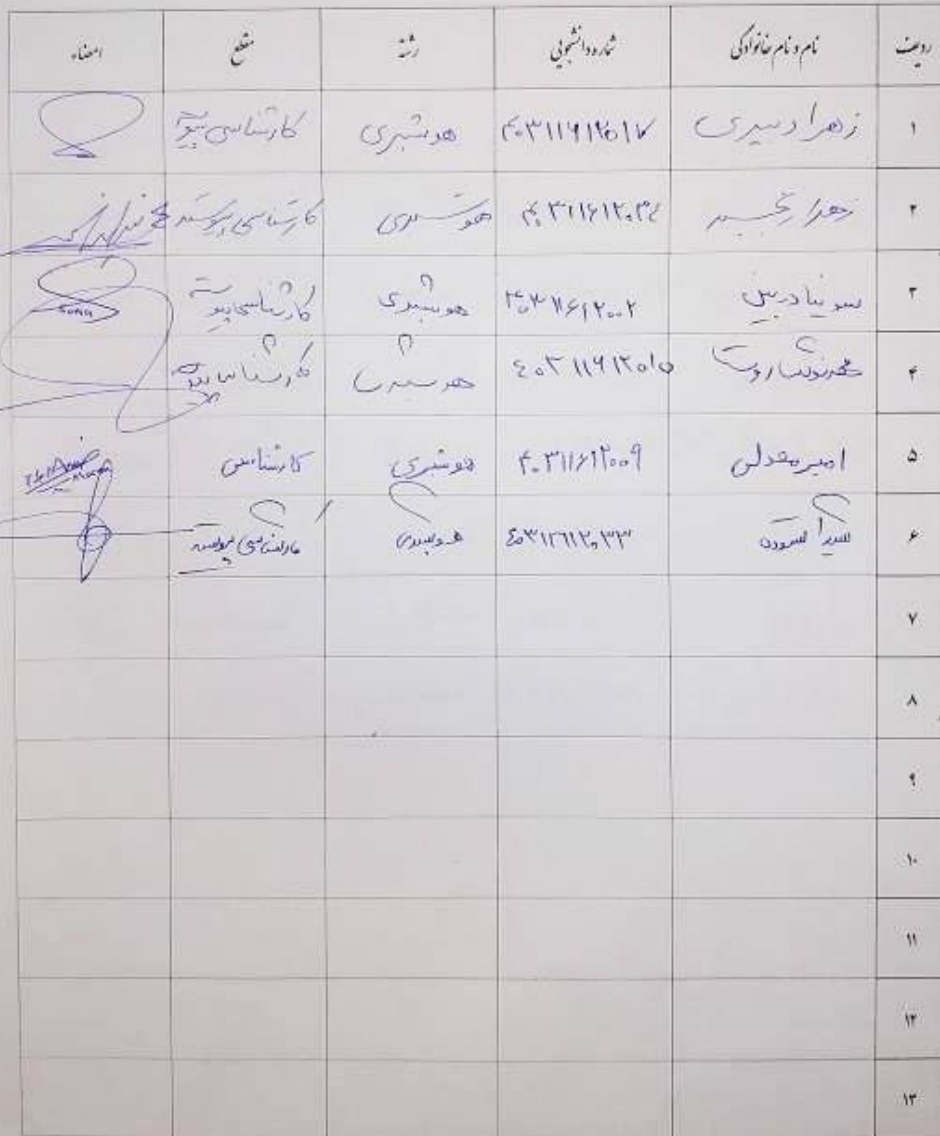 ردیف نام و نام خانوادگی شماره دانشجویی رشته مقطع امضاء
۱ زهرا دبیری ۴۰۳۱۱۶۱۲۰۱۷ هوشبری کارشناسی پیوسته
۲ زهرا ۴۰۳۱۱۶۱۲۰۳۴ هوشبری کارشناسی پیوسته
۳ سونیا دربین ۴۰۳۱۱۶۱۲۰۰۲ هوشبری کارشناسی پیوسته
۴ ۴۰۳۱۱۶۱۲۰۱۵ هوشبری کارشناسی پیوسته
۵ امیر معدلی ۴۰۳۱۱۶۱۲۰۰۹ هوشبری کارشناسی
۶ ستوده ۴۰۳۱۲۶۱۲۰۳۳ هوشبری کارشناسی پیوسته
۷
۸
۹
۱۰
۱۱
۱۲
۱۳